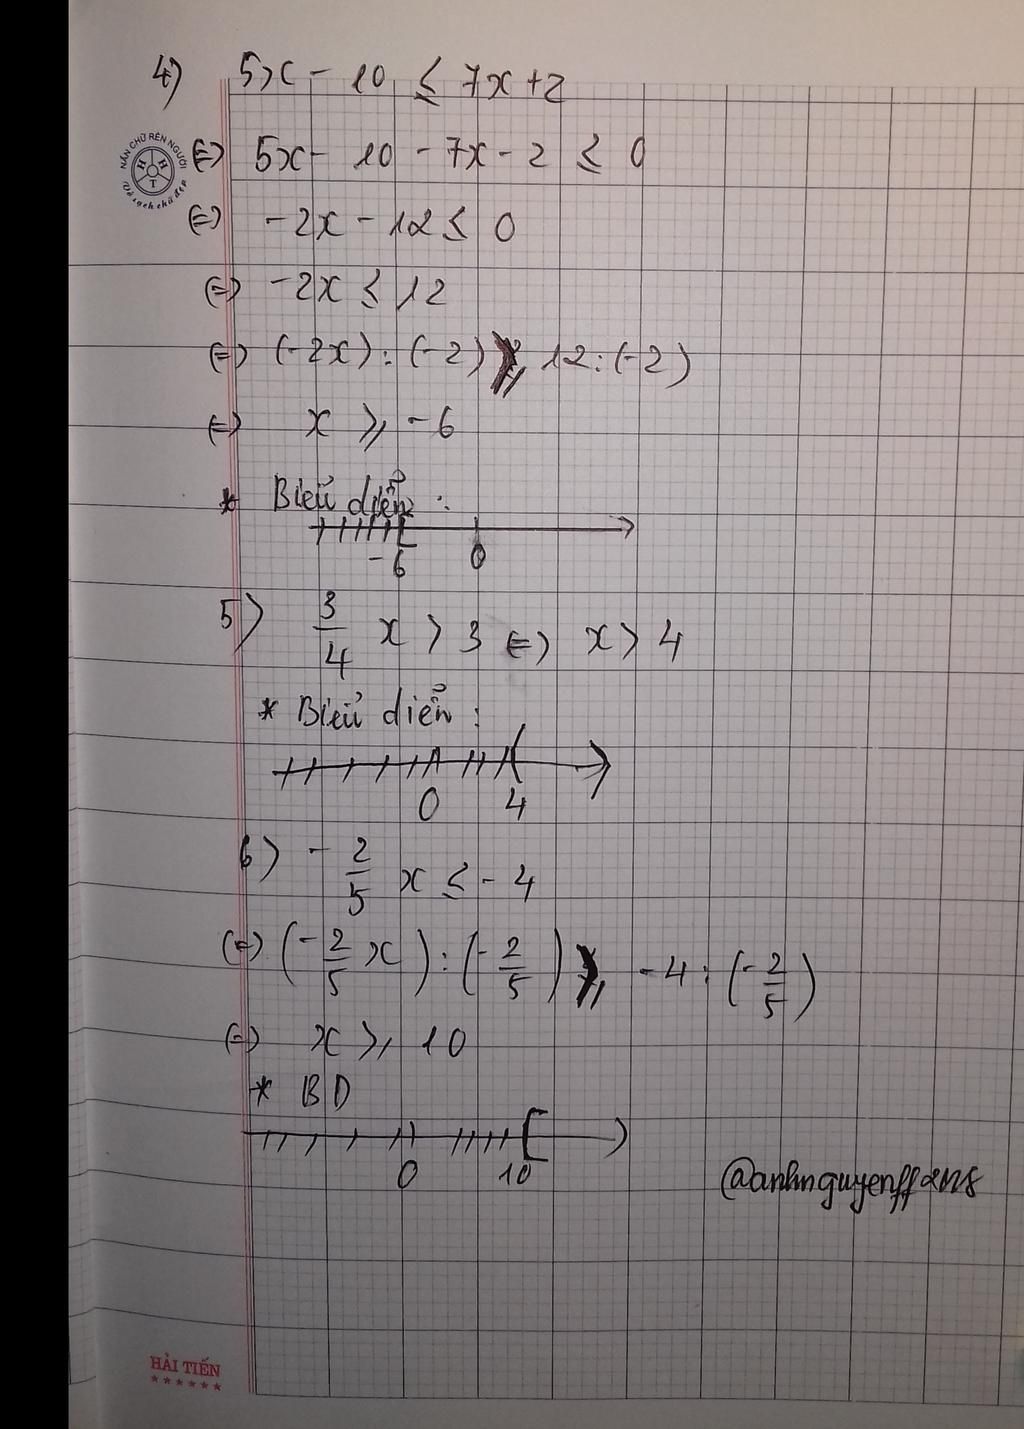 4) 5x - 10 ≤ 7x + 2
NẮN CHỮ RÈN NGƯỜI
H H T
Vở sạch chữ đẹp
(=) 5x - 10 - 7x - 2 ≤ 0
(=) -2x - 12 ≤ 0
(=) -2x ≤ 12
(=) (-2x) : (-2) ≥ 12 : (-2)
(=) x ≥ -6
* Biểu diễn :
-6 0
5) 3/4 x > 3 (=) x > 4
* Biểu diễn :
0 4
6) - 2/5 x ≤ - 4
(=) (- 2/5 x) : (- 2/5) ≥ -4 : (- 2/5)
(=) x ≥ 10
* BD
0 10
HẢI TIẾN